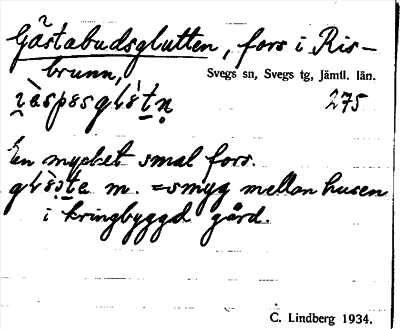 Gästabudsglutten, fors i Ris-
brunn,
Svegs sn, Svegs tg, Jämtl. län.
275
En mycket smal fors.
m. = smyg mellan husen
i kringbyggd gård.
C. Lindberg 1934.